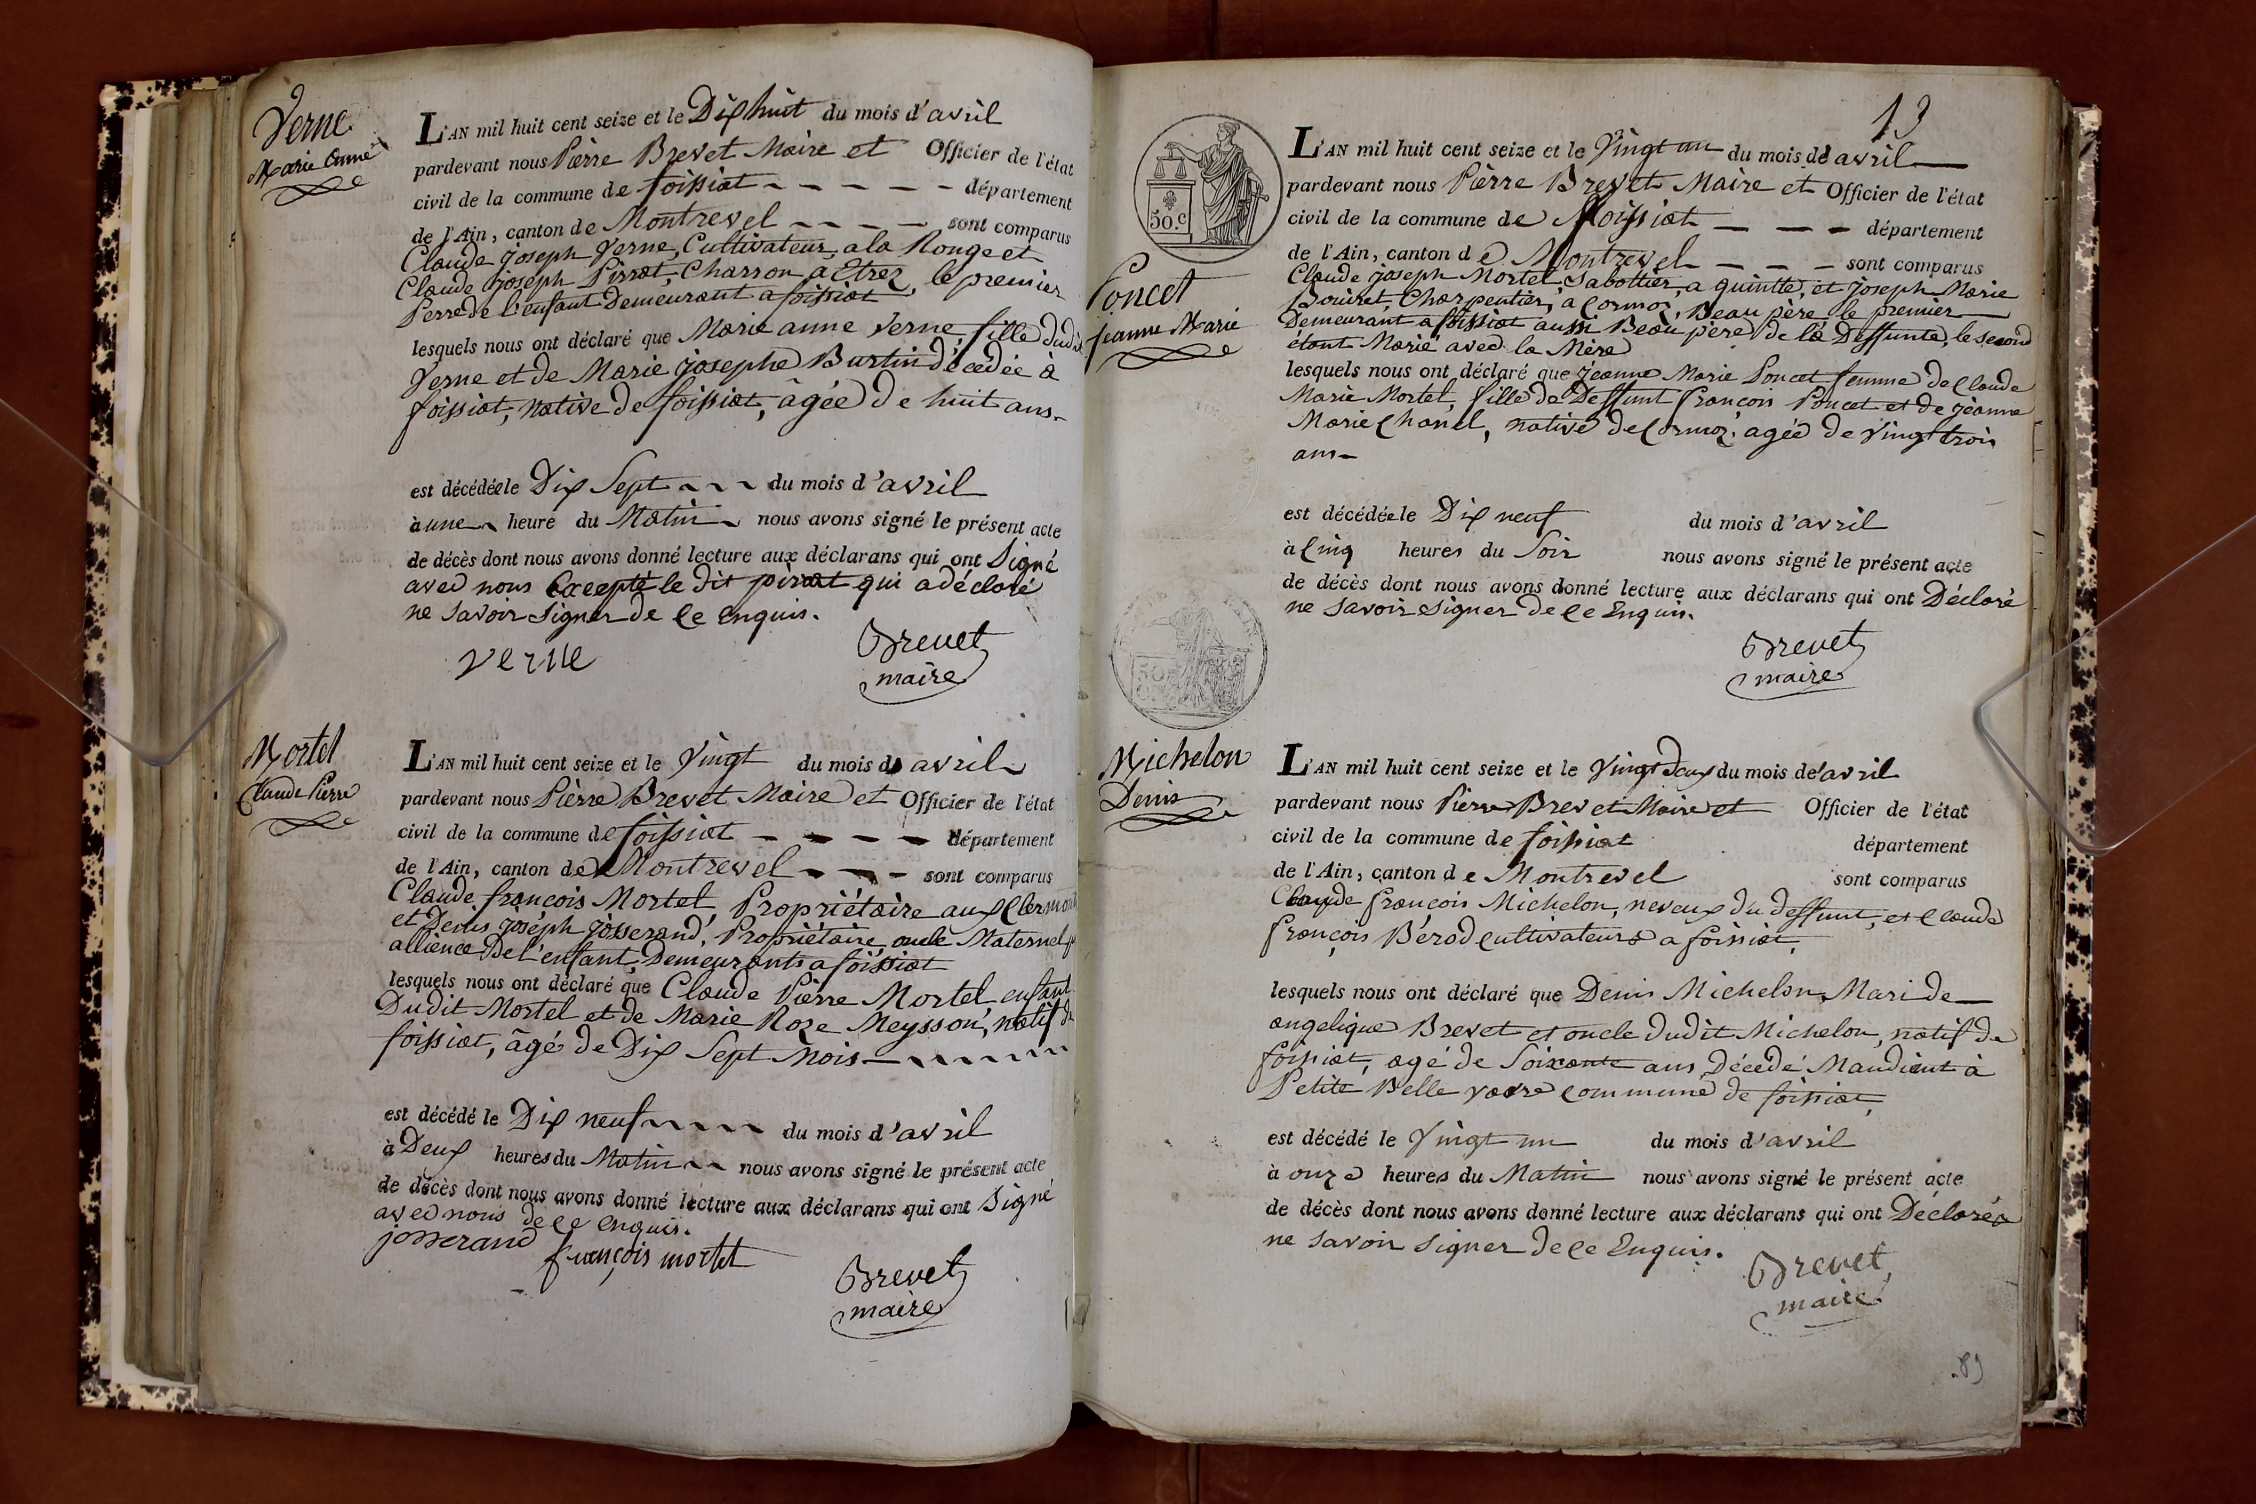 Verne
Marie Anne
L'AN mil huit cent seize et le Dix huit du mois d'avril
pardevant nous Pierre Brevet Maire et Officier de l'état
civil de la commune de foissiat département
de l'Ain, canton de Montrevel sont comparus
Claude joseph Verne, Cultivateur, a la Ronge et
Claude joseph Pirrat, Charron a Etrez, le premier
Perre de l'enfant Demeurant a foissiat
lesquels nous ont déclaré que Marie anne Verne, fille dudit
Verne et de Marie josephe Burtin Décédée à
foissiat, native de foissiat, âgée De huit ans
est décédée le Dix Sept du mois d'avril
à une heure du Matin nous avons signé le présent acte
de décès dont nous avons donné lecture aux déclarans qui ont Signé
avec nous Excepté le dit pirrat qui a déclaré
ne savoir signer de Ce Enquis.
verne
Brevet
maire
Mortel
Claude Pierre
L'AN mil huit cent seize et le Vingt du mois d avril
pardevant nous Pierre Brevet Maire et Officier de l'état
civil de la commune de foissiat département
de l'Ain, canton de Montrevel sont comparus
Claude françois Mortel, Propriétaire aux Clermont
et Denis joseph josserand, Propriétaire oncle Maternel
allience De l'enfant, Demeurants a foissiat
lesquels nous ont déclaré que Claude Pierre Mortel enfant
Dudit Mortel et de Marie Roze Meysson, natif de
foissiat, âgé de Dix Sept Mois
est décédé le Dix neuf du mois d'avril
à Deux heures du Matin nous avons signé le présent acte
de décès dont nous avons donné lecture aux déclarans qui ont Signé
avec nous de Ce Enquis.
josserand
françois mortel
Brevet
maire
13
50.c
Poncet
jeanne Marie
L'AN mil huit cent seize et le Vingt un du mois de avril
pardevant nous Pierre Brevet Maire et Officier de l'état
civil de la commune de foissiat département
de l'Ain, canton de Montrevel sont comparus
Claude joseph Mortel, Sabottier, a quintte, et joseph Marie
Bouvret, Charpentier, a Cormoz, Beau père le premier
Demeurant a foissiat aussi Beau père de la Deffunte, le second
étant Marié avec la Mère
lesquels nous ont déclaré que Jeanne Marie Poncet femme de Claude
Marie Mortel, fille de Deffunt françois Poncet et de jeanne
Marie Chanel, native de Cormoz, agée de Vingt trois
ans
est décédée le Dix neuf du mois d'avril
à Cinq heures du Soir nous avons signé le présent acte
de décès dont nous avons donné lecture aux déclarans qui ont Déclaré
ne savoir signer de Ce Enquis.
Brevet
maire
Michelon
Denis
L'AN mil huit cent seize et le Vingt deux du mois de avril
pardevant nous Pierre Brevet Maire et Officier de l'état
civil de la commune de foissiat département
de l'Ain, canton de Montrevel sont comparus
Claude françois Michelon, neveux du deffunt, et Claude
françois Bérod cultivateurs a foissiat,
lesquels nous ont déclaré que Denis Michelon Mari de
angelique Brevet et oncle dudit Michelon, natif de
foissiat, agé de Soixante ans Décédé Mandient à
Petite Belle vavre commune de foissiat,
est décédé le Vingt un du mois d'avril
à onze heures du Matin nous avons signé le présent acte
de décès dont nous avons donné lecture aux déclarans qui ont Déclaré
ne savoir signer de Ce Enquis.
Brevet
maire
89